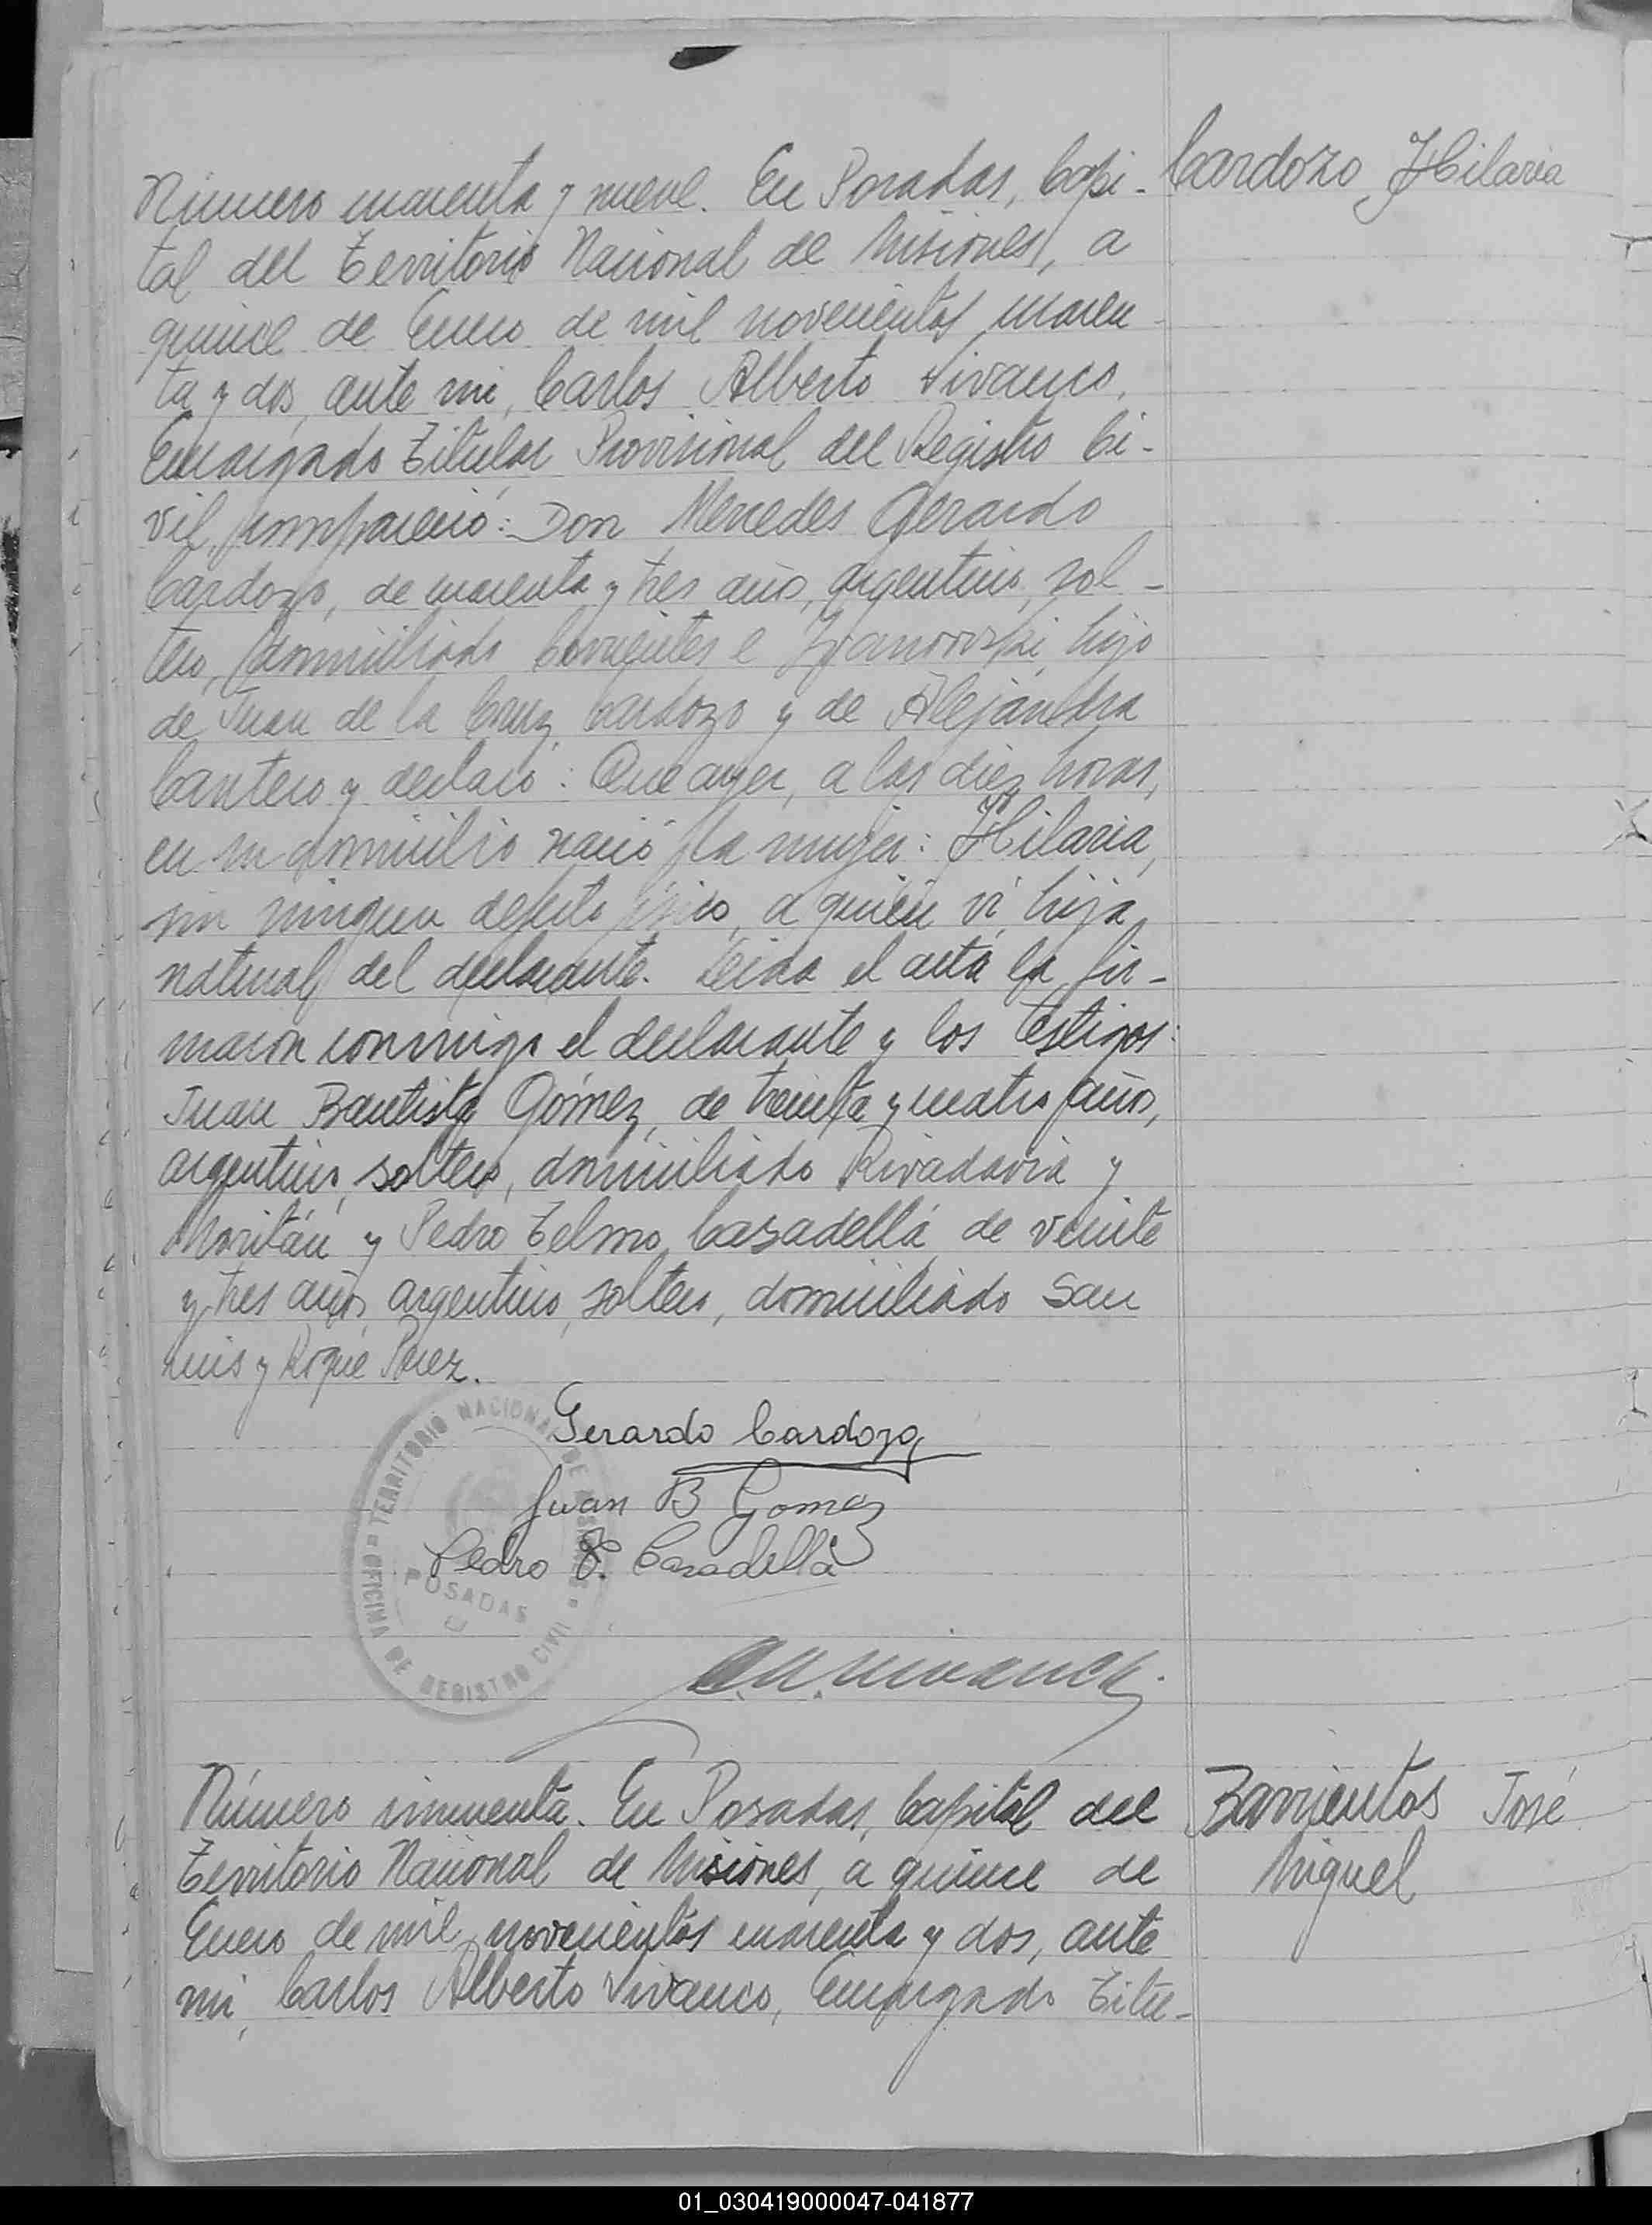 Número cuarenta y nueve. En Posadas, Capi-
tal del Territorio Nacional de Misiones, a
quince de Enero de mil novecientos cuaren
ta y dos, ante mi, Carlos Alberto Vivanco,
Encargado Titular Provisional del Registro Ci-
vil, compareció: Don Mercedes Gerardo
Cardozo, de cuarenta y tres años, argentino, sol-
tero, domiciliado Corrientes e hijo
de Juan de la Cruz Cardozo y de Alejandra
Cantero y declaró: Que ayer, a las diez horas,
en su domicilio nació la mujer: Hilaria,
sin ningun defecto fisico, a quien vi, hija
natural del declarante. Leida el acta la fir-
maron conmigo el declarante y los testigos:
Juan Bautista Gómez, de treinta y cuatro años,
argentino, soltero, domiciliado Rivadavia y
Moritán y Pedro Telmo Casadellá de veinte
y tres años, argentino, soltero, domiciliado San
Luis y Roque Perez.
Cardozo, Hilaria
Gerardo Cardozo
Juan B Gomez
Pedro T. Casadellá
TERRITORIO NACIONAL DE MISIONES
OFICINA DE REGISTRO CIVIL
POSADAS
C.A. Vivanco
Número cincuenta. En Posadas, Capital del
Territorio Nacional de Misiones, a quince de
Enero de mil novecientos cuarenta y dos, ante
mi, Carlos Alberto Vivanco, Encargado Titu-
Barrientos José
Miguel
01_030419000047-041877